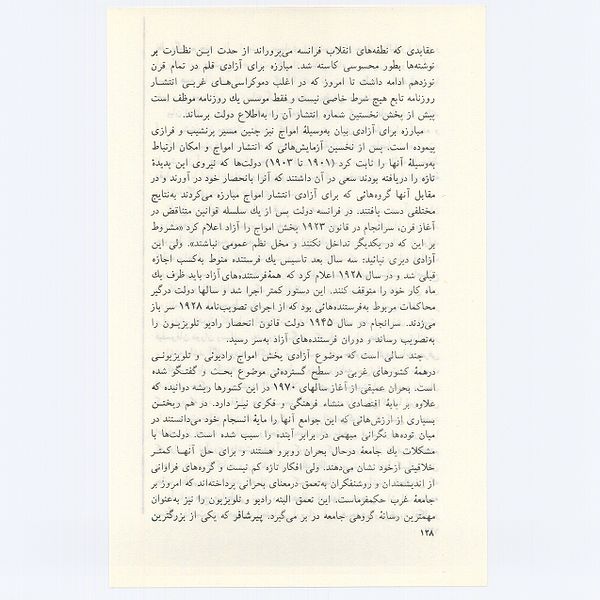 عقایدی که نطفه‌های انقلاب فرانسه می‌پروراند از حدت ایـن نظـارت بر
نوشته‌ها بطور محسوسی کاسته شد. مبارزه برای آزادی قلم در تمام قرن
نوزدهم ادامه داشت تا امروز که در اغلب دموکراسی‌هـای غربـی انتشـار
روزنامه تابع هیچ شرط خاصی نیست و فقط موسس یك روزنامه موظف است
پیش از پخش نخستین شماره انتشار آن را به‌اطلاع دولت برساند.
مبارزه برای آزادی بیان به‌وسیلهٔ امواج نیز چنین مسیر پرنشیب و فرازی
پیموده است. پس از نخسین آزمایش‌هائی که انتشار امواج و امکان ارتباط
به‌وسیلهٔ آنها را ثابت کرد (۱۹۰۱ تا ۱۹۰۳) دولت‌ها که نیروی این پدیدهٔ
تازه را دریافته بودند سعی در آن داشتند که آنرا بانحصار خود در آورند و در
مقابل آنها گروه‌هائی که برای آزادی انتشار امواج مبارزه می‌کردند به‌نتایج
مختلفی دست یافتند. در فرانسه دولت پس از یك سلسله قوانین متناقض در
آغاز قرن، سرانجام در قانون ۱۹۲۳ پخش امواج را آزاد اعلام کرد «مشروط
بر این که در یکدیگر تداخل نکنند و مخل نظم عمومی نباشند». ولی این
آزادی دیری نپائید: سه سال بعد تاسیس یك فرستنده منوط به‌کسب اجازه
قبلی شد و در سال ۱۹۲۸ اعلام کرد که همهٔ‌فرستنده‌های آزاد باید ظرف یك
ماه کار خود را متوقف کنند. این دستور کمتر اجرا شد و سالها دولت درگیر
محاکمات مربوط به‌فرستنده‌هائی بود که از اجرای تصویب‌نامه ۱۹۲۸ سر باز
می‌زدند. سرانجام در سال ۱۹۴۵ دولت قانون انحصار رادیو تلویزیـون را
به‌تصویب رساند و دوران فرستنده‌های آزاد به‌سر رسید.
چند سالی است که موضوع آزادی پخش امواج رادیوئی و تلویزیونـی
درهمهٔ کشورهای غربی در سطح گسترده‌ئی موضوع بحـث و گفتـگو شده
است. بحران عمیقی از آغاز سالهای ۱۹۷۰ در این کشورها ریشه دوانیده که
علاوه بر پایهٔ اقتصادی منشاء فرهنگی و فکری نیـز دارد. در هم ریختـن
بسیاری از ارزش‌هائی که این جوامع آنها را مایهٔ انسجام خود می‌دانستند در
میان توده‌ها نگرانی مبهمی در برابر آینده را سبب شده است. دولت‌ها با
مشکلات یك جامعهٔ درحال بحران روبرو هستند و برای حل آنهـا کمتـر
خلاقیتی ازخود نشان می‌دهند. ولی افکار تازه کم نیست و گروه‌های فراوانی
از اندیشمندان و روشنفکران به‌تعمق درمعنای بحرانی پرداخته‌اند که امروز بر
جامعهٔ غرب حکمفرماست. این تعمق البته رادیو و تلویزیون را نیز به‌عنوان
مهمترین رسانهٔ گروهی جامعه در بر می‌گیرد. پیرشافر که یکی از بزرگترین
۱۲۸